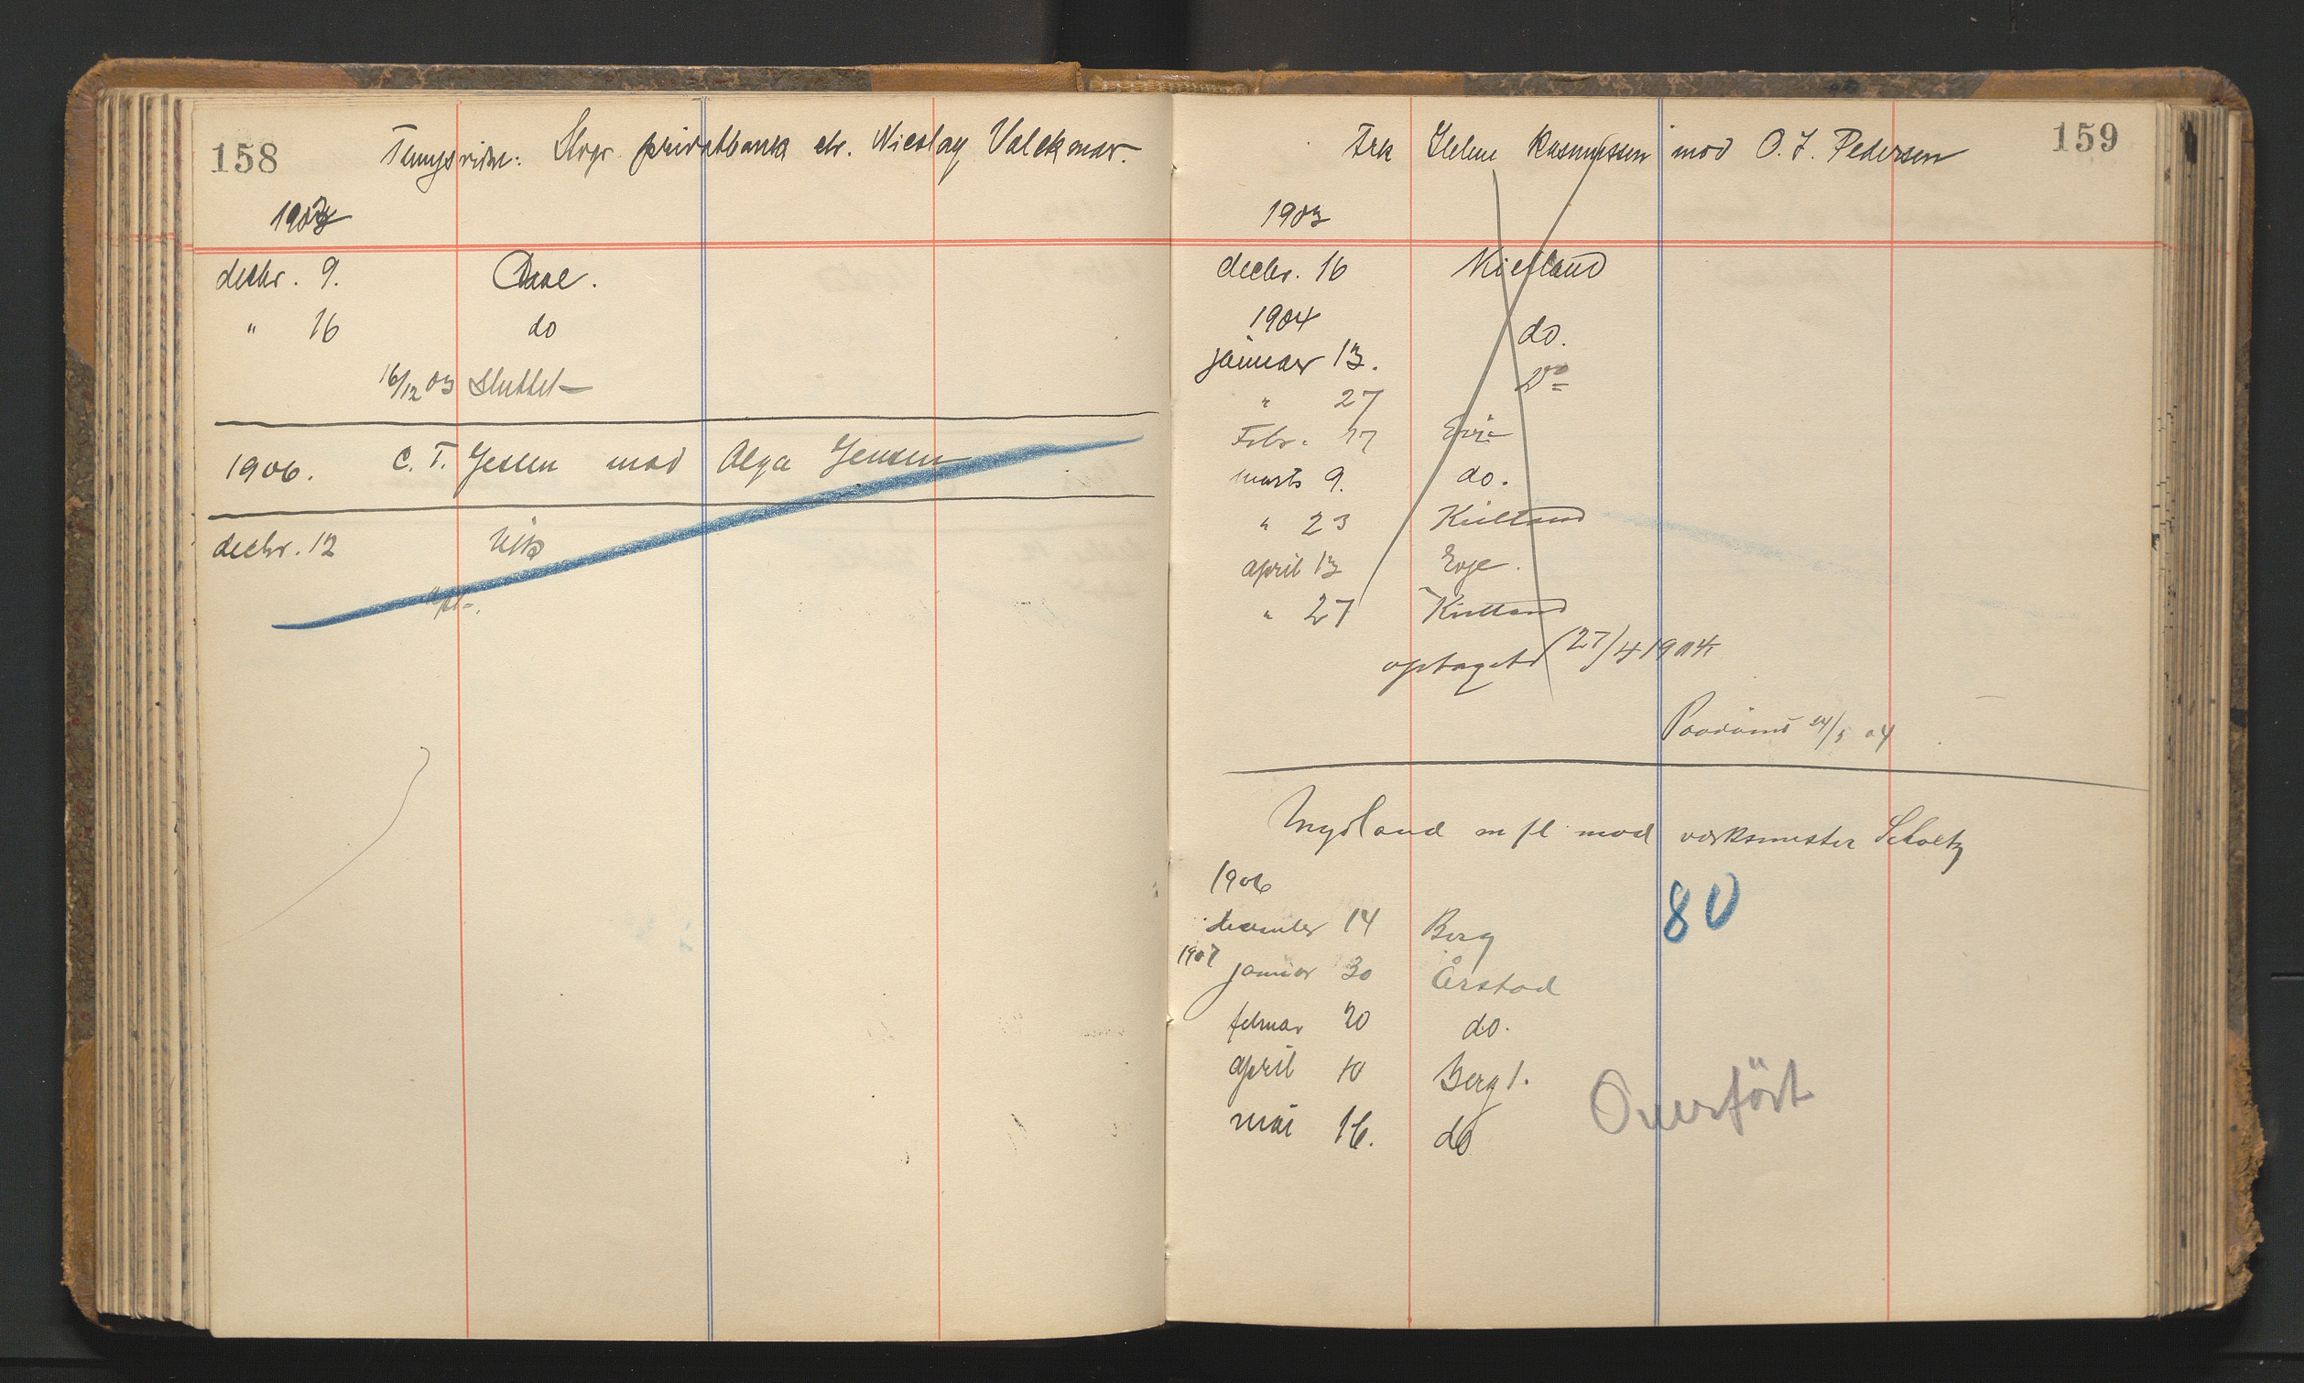 158
Stvgr. privatbank ctr. Nicolay Valckmar.
1903
decbr. 9. Daae.
" 16 do
16/12 03 Sluttet
1906. C. T. Jessen mod Olga Jensen
decbr. 12
159
Frk Helene Rasmussen mod O. J. Pedersen
1903
decbr. 16 Kielland
1904
januar 13. do.
" 27 Do
Febr. 17 Evje
marts 9. do.
" 23 Kielland
april 13 Evje.
" 27 Kielland
optaget 27/4 1904
Paadømt 24/5 04
m fl mod verksmester Scholtz
1906
80
december 14 Berg
1907 januar 30 Årstad
februar 20 do.
april 10 Berg
mai 16. do
Overført